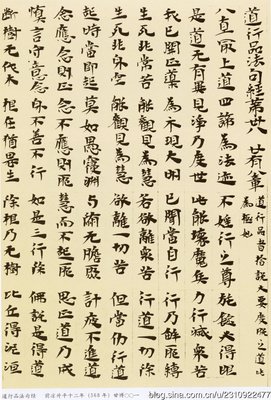 道行品法句經第廿八 廿有八章
道行品者旨說大要度脫之道此
為極妙
八直最上道 四諦為法迹 不婬行之尊 施燈必得眼
是道无有畏 見淨乃度世 此能壞魔兵 力行滅衆苦
我已開正道 為示現大明 已聞當自行 行乃解脫縛
生死非常苦 能觀見為慧 若欲離衆苦 行道一切除
生死非常空 能觀見為慧 欲離一切苦 但當勤行道
起時當即起 莫如愚覆淵 與墮无瞻聚 計疲不進道
念應念則正 念不應則邪 慧而不起邪 思正道乃成
慎言守意念 身不善不行 如是三行除 佛說是得道
斷樹无伐本 根在猶復生 除根乃无樹 比丘得泥洹
道行品法句經 前凉升平十二年（368年）甘博〇〇一
blog.sina.com.cn/u/2310922477